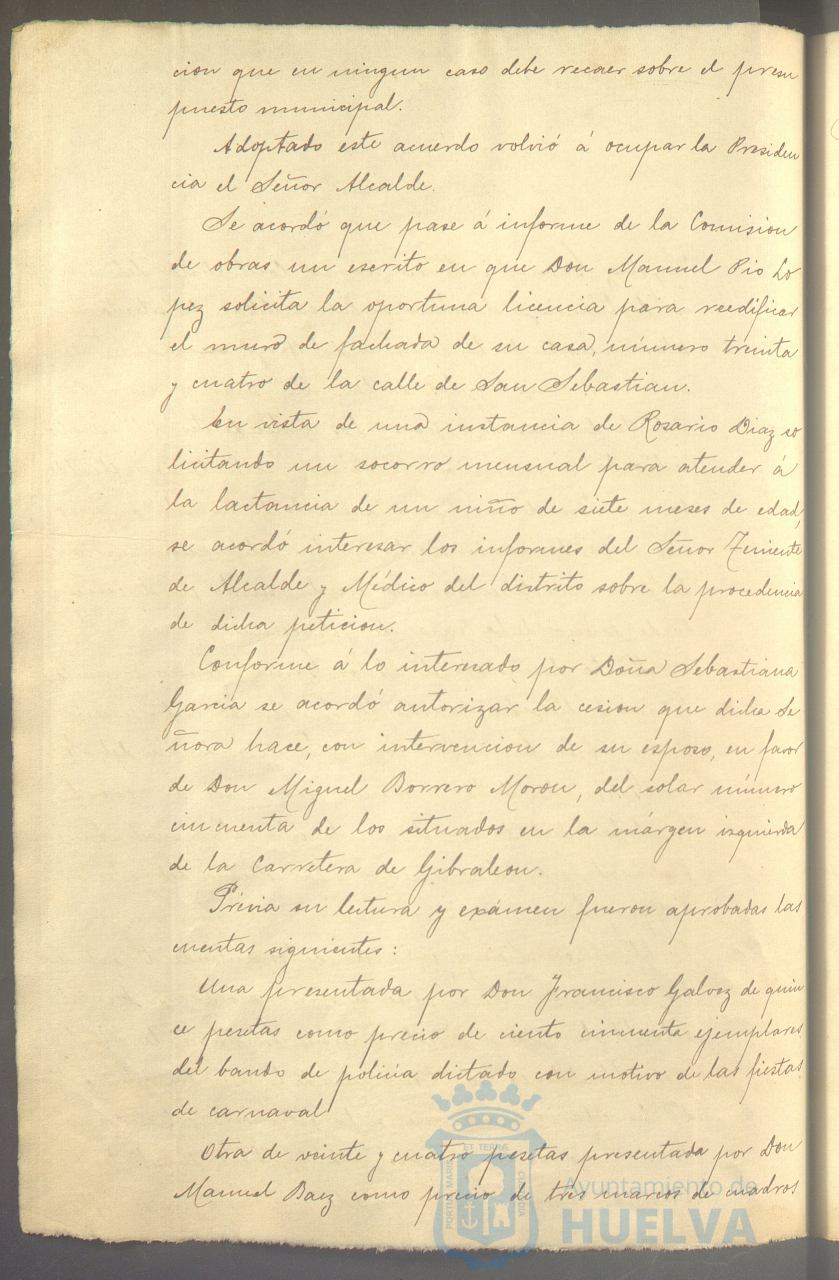 cion que en ningun caso debe recaer sobre el presu
puesto municipal.
Adoptado este acuerdo volvió á ocupar la Presiden
cia el Señor Alcalde.
Se acordó que pase á informe de la Comision
de obras un escrito en que Don Manuel Pio Lo
pez solicita la oportuna licencia para reedificar
el muro de fachada de su casa, número treinta
y cuatro de la calle de San Sebastian.
En vista de una instancia de Rosario Diaz so
licitando un socorro mensual para atender á
la lactancia de un niño de siete meses de edad,
se acordó interesar los informes del Señor Teniente
de Alcalde y Médico del distrito sobre la procedencia
de dicha peticion.
Conforme á lo interesado por Doña Sebastiana
Garcia se acordó autorizar la cesion que dicha Se
ñora hace, con intervencion de su esposo, en favor
de Don Miguel Borrero Moron, del solar número
cincuenta de los situados en la márgen izquierda
de la Carretera de Gibraleon.
Prévia su lectura y exámen fueron aprobadas las
cuentas siguientes:
Una presentada por Don Francisco Galvez de quin
ce pesetas como precio de ciento cincuenta ejemplares
del bando de policía dictado con motivo de las fiestas
de carnaval
Otra de veinte y cuatro pesetas presentada por Don
Manuel Baez como precio de tres marcos de cuadros
PORTUS MARIS ET TERRE CUSTODIA
Ayuntamiento de
HUELVA